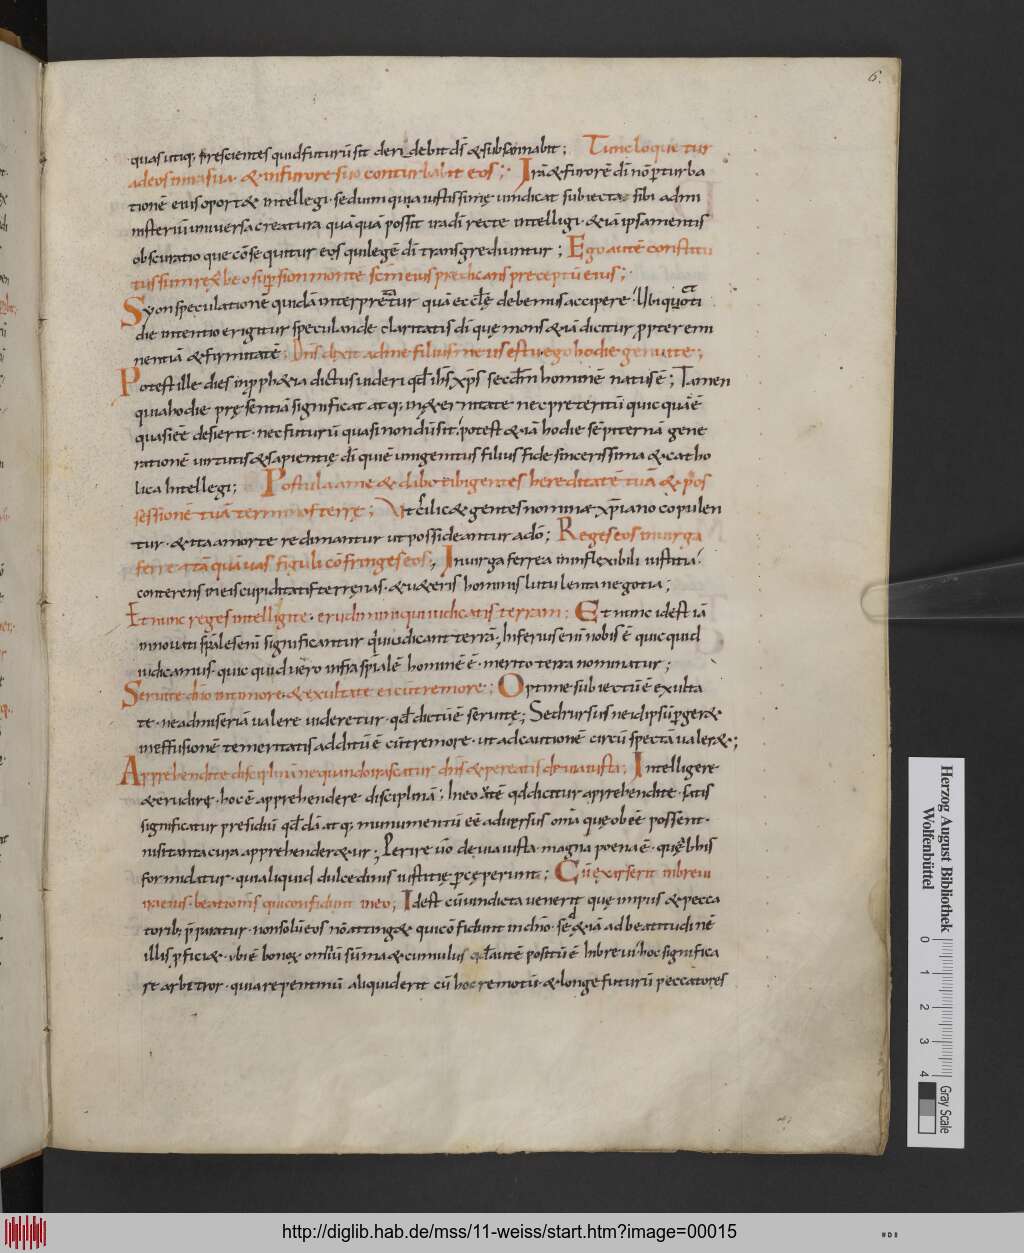 6.
quasi utiq; prescientes quid futurū sit deridebit dn̄s & subsannabit; Tunc loquetur
ad eos in ira sua· & in furore suo conturbabit eos; Irā & furorē dn̄i nō ꝑturba
tionē eius oport& intellegi· sed uim qua iustissime uindicat subiecta sibi ad mi
nisteriū uniuersa creatura quāquā possit ira dn̄i recte intelligi· & iā ipsa mentis
obscuratio que cōsequitur eos qui legē dī transgrediuntur; Ego autē constitu
tus sum rex ab eo sup sion montē scm̄ eius predicans preceptū eius;
Syon speculationē quidā interpretatur quā eccłę debemus accipere· ubi quoti
die intentio erigitur speculandę claritatis dī que mons &iā dicitur propter emi
nentiā & firmitatē; Dn̄s dixit ad me filius meus es tu ego hodie genui te;
Potest ille dies in proph&ia dictus uideri qđ ih̄s xp̄s scđm hominē natus ē; Tamen
quia hodie pręsentiā significat atq; in &ernitate nec preteritū quicquā ē
quasi eē desierit· nec futurū quasi nondū sit· potest &iā hodie sēpiternā gene
rationē uirtutis & sapientię dī qui ē unigenitus filius fide sincerissima & catho
lica intellegi; Postula a me & dabo tibi gentes hereditatē tuā & pos
sessionē tuā terminos terrę; Vt scilic& gentes nomini xp̄iano copulen
tur· & ita a morte redimantur ut possideantur a dō; Reges eos in uirga
ferrea & tāquā uas figuli cōfringes eos; In uirga ferrea in inflexibili iustitia·
conterens in eis cupiditates terrenas· & u&eris hominis lutulenta negotia;
Et nunc reges intelligite· erudimini qui iudicatis terram; Et nunc idest iā
innouati sp̄ales enī significantur qui iudicant terrā; Inferius enī nobis ē quicquid
iudicamus· quicquid uero infra spiritalē hominē ē· merito terra nominatur;
Seruite dn̄o in timore· & exultate ei cū tremore; Optime subiectū ē exulta
te· ne ad miseriā ualere uideretur· qđ dictū ē seruite; Sed rursus ne id ipsū pger&
in effusionē temeritatis additū ē cū tremore· ut ad cautionē circūspectā ualer&;
Apprehendite disciplinā ne quando irascatur dn̄s & pereatis de uia iusta; Intelligere
& erudiri· hoc ē apprehendere disciplinā; In eo tn̄ qđ dicitur apprehendite· satis
significatur presidiū qđdā atq; munumentū eē aduersus omīa quę obeē possent·
nisi tanta cura apprehender&ur; Perire uō de uia iusta· magna poena ē· quę ab his
formidatur· qui aliquid dulcedinis iustitię pceperunt; Cū exarserit in breui
ira eius· beati omīs qui confidunt in eo; Idest cū uindicta uenerit quę impiis & pecca
torib; pparatur· non solū eos nō atting& qui cōfidunt in dn̄o· sed &iā ad beatitudinē
illis pfici&· ubi ē bonoꝝ omīū sūma & cumulus· qđ autē positū ē in breui hoc significa
re arbitror· quia repentinū aliquid erit cū hoc remotū· & longe futurū peccatores
Herzog August Bibliothek
Wolfenbüttel
0 1 2 3 4
Gray Scale
http://diglib.hab.de/mss/11-weiss/start.htm?image=00015